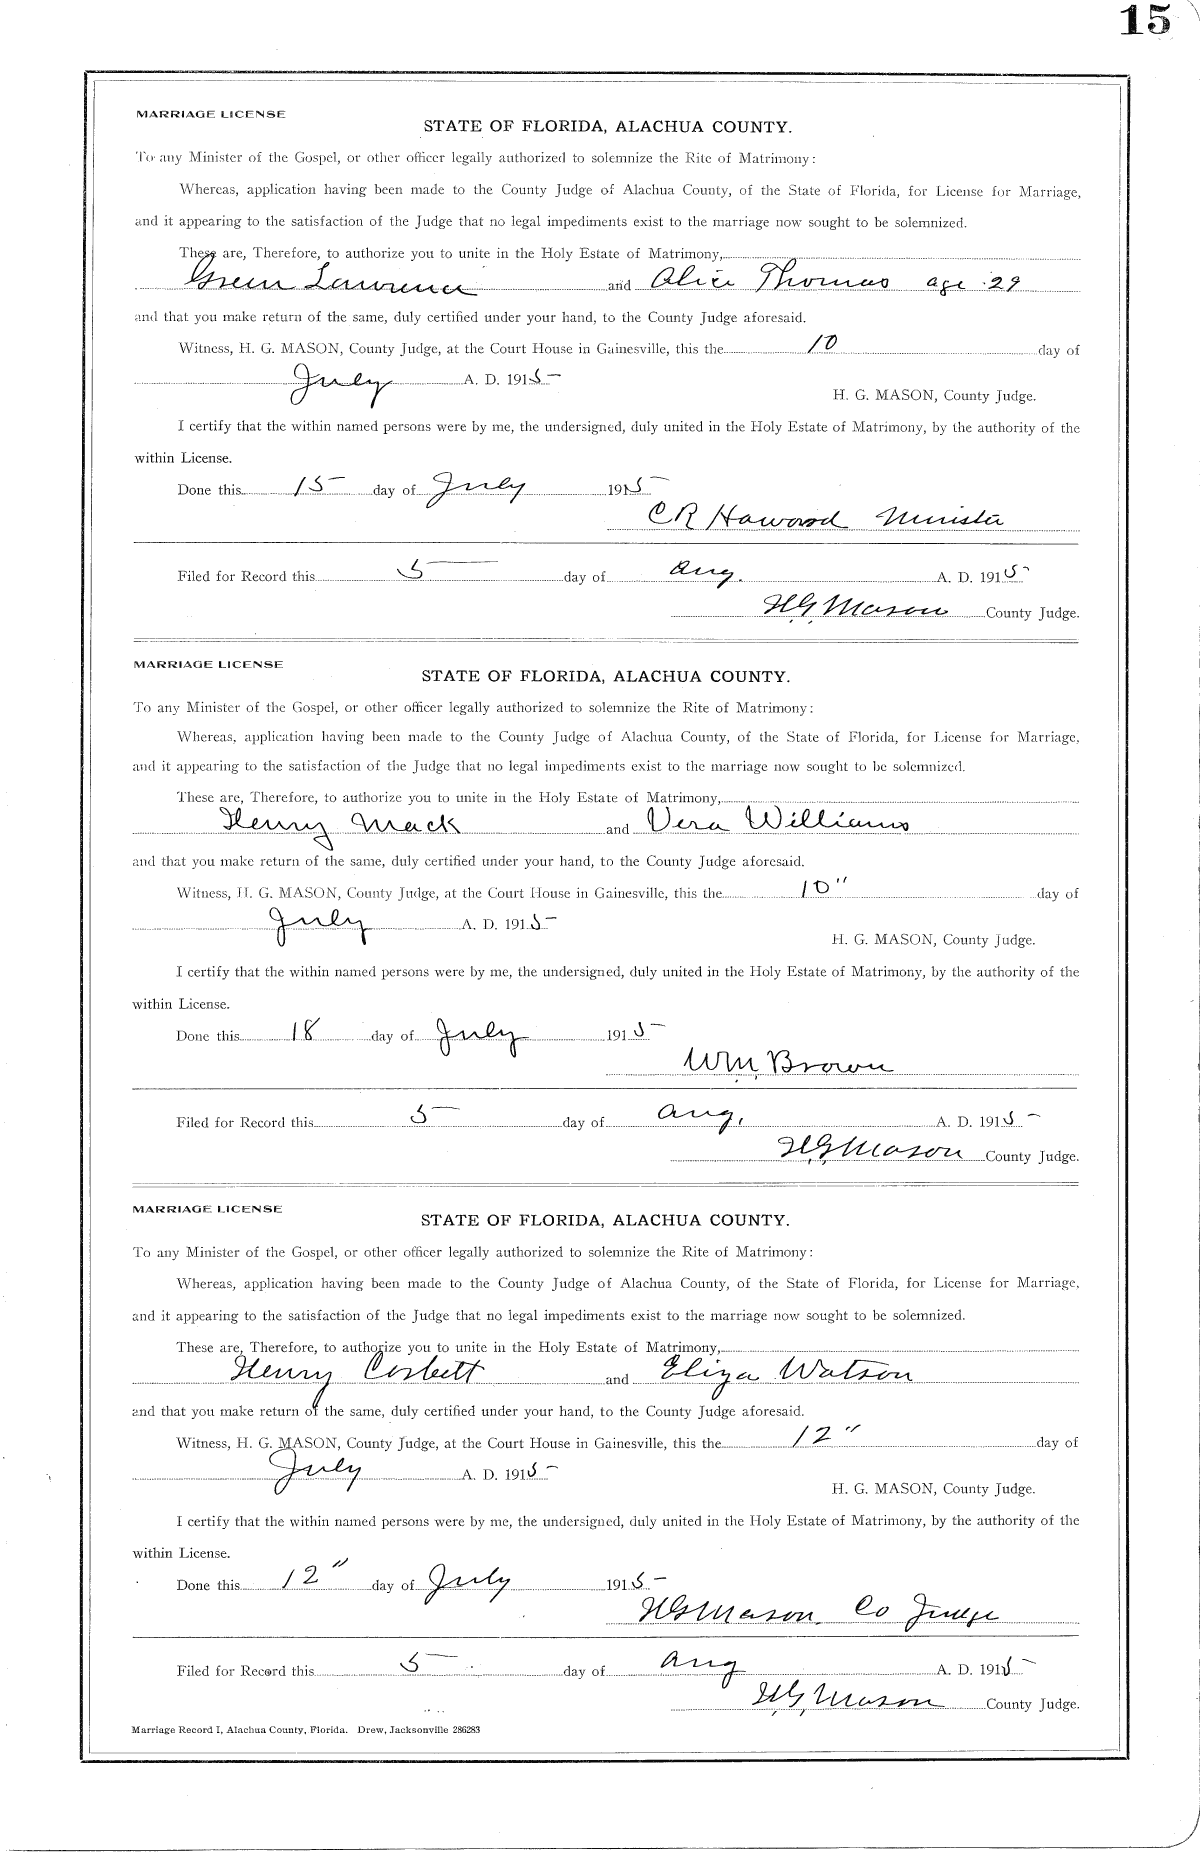 15
MARRIAGE LICENSE
STATE OF FLORIDA, ALACHUA COUNTY.
To any Minister of the Gospel, or other officer legally authorized to solemnize the Rite of Matrimony:
Whereas, application having been made to the County Judge of Alachua County, of the State of Florida, for License for Marriage,
and it appearing to the satisfaction of the Judge that no legal impediments exist to the marriage now sought to be solemnized.
These are, Therefore, to authorize you to unite in the Holy Estate of Matrimony,
Green Lawrence and Alice Thomas age 29
and that you make return of the same, duly certified under your hand, to the County Judge aforesaid.
Witness, H. G. MASON, County Judge, at the Court House in Gainesville, this the 10 day of
July A. D. 1915
H. G. MASON, County Judge.
I certify that the within named persons were by me, the undersigned, duly united in the Holy Estate of Matrimony, by the authority of the
within License.
Done this 15 day of July 1915
C R Haword Minister
Filed for Record this 5 day of Aug. A. D. 1915
H.G. Mason County Judge.
MARRIAGE LICENSE
STATE OF FLORIDA, ALACHUA COUNTY.
To any Minister of the Gospel, or other officer legally authorized to solemnize the Rite of Matrimony:
Whereas, application having been made to the County Judge of Alachua County, of the State of Florida, for License for Marriage,
and it appearing to the satisfaction of the Judge that no legal impediments exist to the marriage now sought to be solemnized.
These are, Therefore, to authorize you to unite in the Holy Estate of Matrimony,
Henry Mack and Vera Williams
and that you make return of the same, duly certified under your hand, to the County Judge aforesaid.
Witness, H. G. MASON, County Judge, at the Court House in Gainesville, this the 10" day of
July A. D. 1915
H. G. MASON, County Judge.
I certify that the within named persons were by me, the undersigned, duly united in the Holy Estate of Matrimony, by the authority of the
within License.
Done this 18 day of July 1915
Wm. Brown
Filed for Record this 5 day of Aug. A. D. 1915
H.G. Mason County Judge.
MARRIAGE LICENSE
STATE OF FLORIDA, ALACHUA COUNTY.
To any Minister of the Gospel, or other officer legally authorized to solemnize the Rite of Matrimony:
Whereas, application having been made to the County Judge of Alachua County, of the State of Florida, for License for Marriage,
and it appearing to the satisfaction of the Judge that no legal impediments exist to the marriage now sought to be solemnized.
These are, Therefore, to authorize you to unite in the Holy Estate of Matrimony,
Henry Corbett and Eliza Watson
and that you make return of the same, duly certified under your hand, to the County Judge aforesaid.
Witness, H. G. MASON, County Judge, at the Court House in Gainesville, this the 12" day of
July A. D. 1915
H. G. MASON, County Judge.
I certify that the within named persons were by me, the undersigned, duly united in the Holy Estate of Matrimony, by the authority of the
within License.
Done this 12" day of July 1915
H G Mason. Co Judge
Filed for Record this 5 day of Aug A. D. 1915
H.G. Mason County Judge.
Marriage Record I, Alachua County, Florida. Drew, Jacksonville 286283